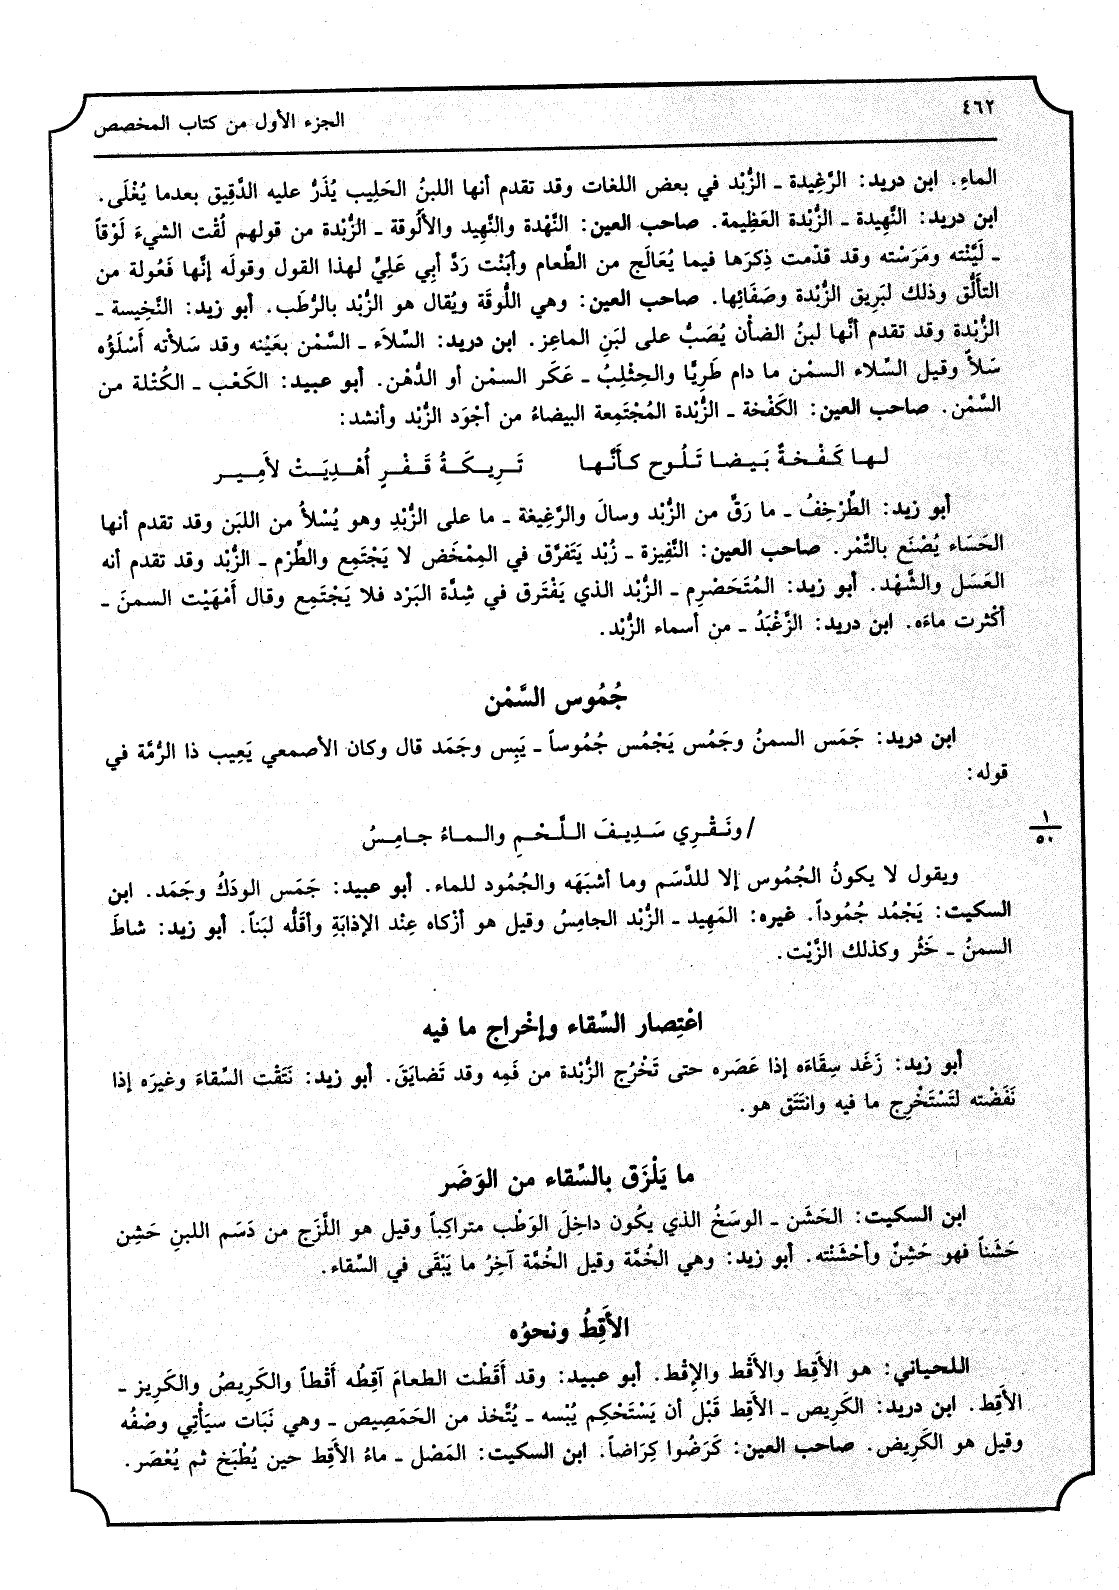 ٤٦٢
الجزء الأول من كتاب المخصص
الماءِ. ابن دريد: الرَّغِيدة ـ الزُّبْد في بعض اللغات وقد تقدم أنها اللبنُ الحَلِيب يُذَرُّ عليه الدَّقِيق بعدما يُغْلَى.
ابن دريد: النَّهِيدة ـ الزُّبْدة العَظِيمة. صاحب العين: النَّهْدة والنَّهِيد والأَلُوقة ـ الزُّبْدة من قولهم لُقْت الشيءَ لَوْقاً
ـ لَيَّنْته ومَرَسْته وقد قدّمت ذِكرَها فيما يُعَالَج من الطَّعام وأبَنْت رَدَّ أبِي عَلِيٍّ لهذا القول وقولَه إنَّها فَعُولة من
التألُّق وذلك لبَرِيق الزُّبْدة وصَفَائِها. صاحب العين: وهي اللُّوقَة ويُقال هو الزُّبْد بالرُّطَب. أبو زيد: النَّخِيسة ـ
الزُّبْدة وقد تقدم أنَّها لبنُ الضأن يُصَبُّ على لبَنِ الماعِز. ابن دريد: السِّلاَء ـ السَّمْن بعَيْنه وقد سَلأته أَسْلَؤُه
سَلأً وقيل السِّلاء السمْن ما دام طَرِيًّا والحِثْلِبُ ـ عَكَر السمْن أو الدُّهْن. أبو عبيد: الكَعْب ـ الكُتْلة من
السَّمْن. صاحب العين: الكَفْخة ـ الزُّبْدة المُجْتَمِعة البيضاءُ من أجْوَد الزُّبْد وأنشد:
لـهـا كَـفْـخـةٌ بَـيـضـا تَـلُـوح كـأنَّـهـا تَـرِيـكَـةُ قَـفْـرٍ أُهْـدِيَـتْ لأَمِـيـر
أبو زيد: الطِّرْخِفُ ـ ما رَقَّ من الزُّبْد وسالَ والرَّغِيغة ـ ما على الزُّبْدِ وهو يُسْلأُ من اللبَن وقد تقدم أنها
الحَسَاء يُصْنَع بالتَّمْر. صاحب العين: النَّفِيزة ـ زُبْد يَتَفرَّق في المِمْخَض لا يَجْتَمِع والطِّرْم ـ الزُّبْد وقد تقدم أنه
العَسَل والشَّهْد. أبو زيد: المُتَحَصْرِم ـ الزُّبْد الذي يَفْتَرق في شِدَّة البَرْد فلا يَجْتَمِع وقال أَمْهَيْت السمنَ ـ
أكْثرت ماءَه. ابن دريد: الزَّغْبَدُ ـ من أسماء الزُّبْد.
جُمُوس السَّمْن
ابن دريد: جَمَس السمنُ وجَمُس يَجْمُس جُمُوساً ـ يَبِس وجَمَد قال وكان الأصمعي يَعِيب ذا الرُّمَّة في
قوله:
/ ونَـقْـرِي سَـدِيـفَ الـلَّـحْـمِ والـمـاءُ جـامِـسُ
١
٥٠
ويقول لا يكونُ الجُمُوس إلا للدَّسَم وما أشبَهَه والجُمُود للماء. أبو عبيد: جَمَس الودَكُ وجَمَد. ابن
السكيت: يَجْمُد جُمُوداً. غيره: المَهِيد ـ الزُّبْد الجامِسُ وقيل هو أزْكاه عِنْد الإذابَةِ وأقَلُّه لبَناً. أبو زيد: شاطَ
السمنُ ـ خَثُر وكذلك الزَّيْت.
اعْتِصار السِّقاء وإخْراج ما فيه
أبو زيد: زَغَد سِقَاءَه إذا عَصَره حتى تَخْرُج الزُّبْدة من فَمِه وقد تَضايَقَ. أبو زيد: نَتَقْت السِّقاءَ وغيرَه إذا
نَفَضْته لتَسْتَخْرِج ما فيه وانتَتَق هو.
ما يَلْزَق بالسِّقاء من الوَضَر
ابن السكيت: الحَشَن ـ الوسَخُ الذي يكُون داخِلَ الوَطْب متراكِباً وقيل هو اللَّزَج من دَسَم اللبنِ حَشِن
حَشَناً فهو حَشِنٌ وأحْشَنْته. أبو زيد: وهي الخُمَّة وقيل الخُمَّة آخِرُ ما يَبْقَى في السِّقاء.
الأَقِطُ ونحوُه
اللحياني: هو الأَقِط والأَقْط والإقْط. أبو عبيد: وقد أَقَطْت الطعامَ آقِطُه أَقْطاً والكَرِيصُ والكَرِيز ـ
الأَقِط. ابن دريد: الكَرِيص ـ الأَقِط قَبْل أن يَسْتَحْكِم يُبْسه ـ يُتَّخذ من الحَمَصِيص ـ وهي نَبَات سيَأتِي وصْفُه
وقيل هو الكَرِيض. صاحب العين: كَرَضُوا كِرَاضاً. ابن السكيت: المَصْل ـ ماءُ الأَقِط حين يُطْبَخ ثم يُعْصَر.